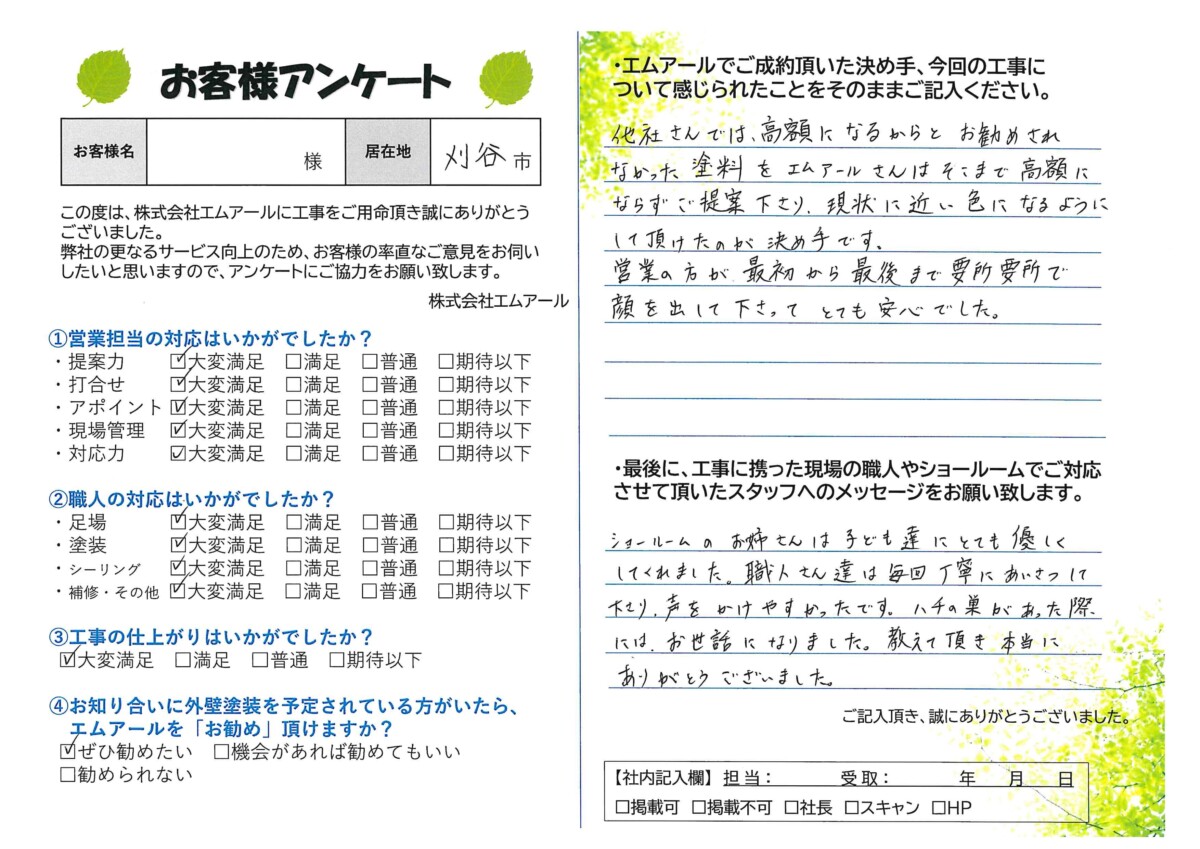 お客様アンケート
お客様名 様 居在地 刈谷市
この度は、株式会社エムアールに工事をご用命頂き誠にありがとう
ございました。
弊社の更なるサービス向上のため、お客様の率直なご意見をお伺い
したいと思いますので、アンケートにご協力をお願い致します。
株式会社エムアール
①営業担当の対応はいかがでしたか？
・提案力 ☑大変満足 □満足 □普通 □期待以下
・打合せ ☑大変満足 □満足 □普通 □期待以下
・アポイント ☑大変満足 □満足 □普通 □期待以下
・現場管理 ☑大変満足 □満足 □普通 □期待以下
・対応力 ☑大変満足 □満足 □普通 □期待以下
②職人の対応はいかがでしたか？
・足場 ☑大変満足 □満足 □普通 □期待以下
・塗装 ☑大変満足 □満足 □普通 □期待以下
・シーリング ☑大変満足 □満足 □普通 □期待以下
・補修・その他 ☑大変満足 □満足 □普通 □期待以下
③工事の仕上がりはいかがでしたか？
☑大変満足 □満足 □普通 □期待以下
④お知り合いに外壁塗装を予定されている方がいたら、
エムアールを「お勧め」頂けますか？
☑ぜひ勧めたい □機会があれば勧めてもいい
□勧められない
・エムアールでご成約頂いた決め手、今回の工事に
ついて感じられたことをそのままご記入ください。
他社さんでは、高額になるからと お勧めされ
なかった 塗料を エムアールさんは そこまで 高額に
ならず ご提案下さり、現状に近い色になるように
して頂けたのが 決め手です。
営業の方が、最初から最後まで要所要所で
顔を出して下さって とても 安心でした。
・最後に、工事に携った現場の職人やショールームでご対応
させて頂いたスタッフへのメッセージをお願い致します。
ショールームの お姉さんは 子ども達に とても 優しく
してくれました。職人さん達は 毎回 丁寧に あいさつして
下さり、声を かけやすかったです。ハチの巣が あった際
には、お世話になりました。教えて頂き 本当に
ありがとうございました。
ご記入頂き、誠にありがとうございました。
【社内記入欄】 担当： 受取： 年 月 日
□掲載可 □掲載不可 □社長 □スキャン □HP